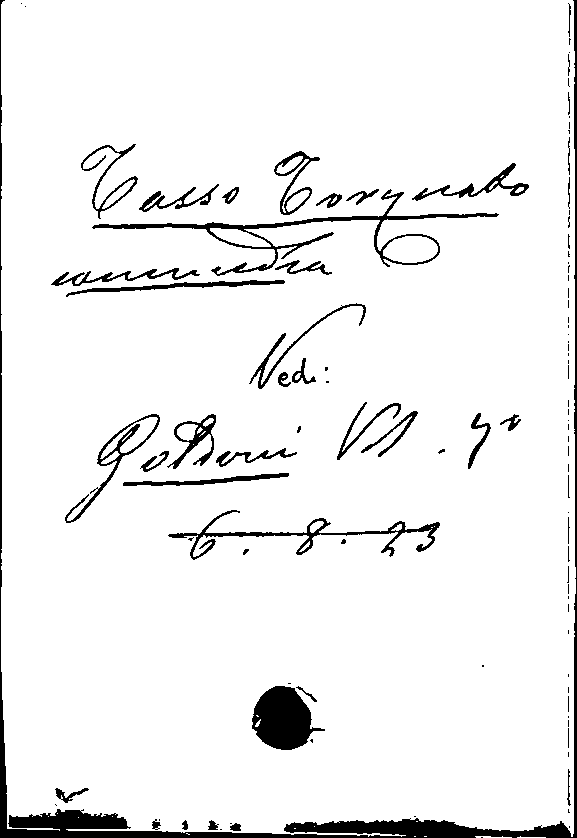 Tasso Torquato
commedia
Vedi:
Goldoni Vol. 7º
6. 8. 23